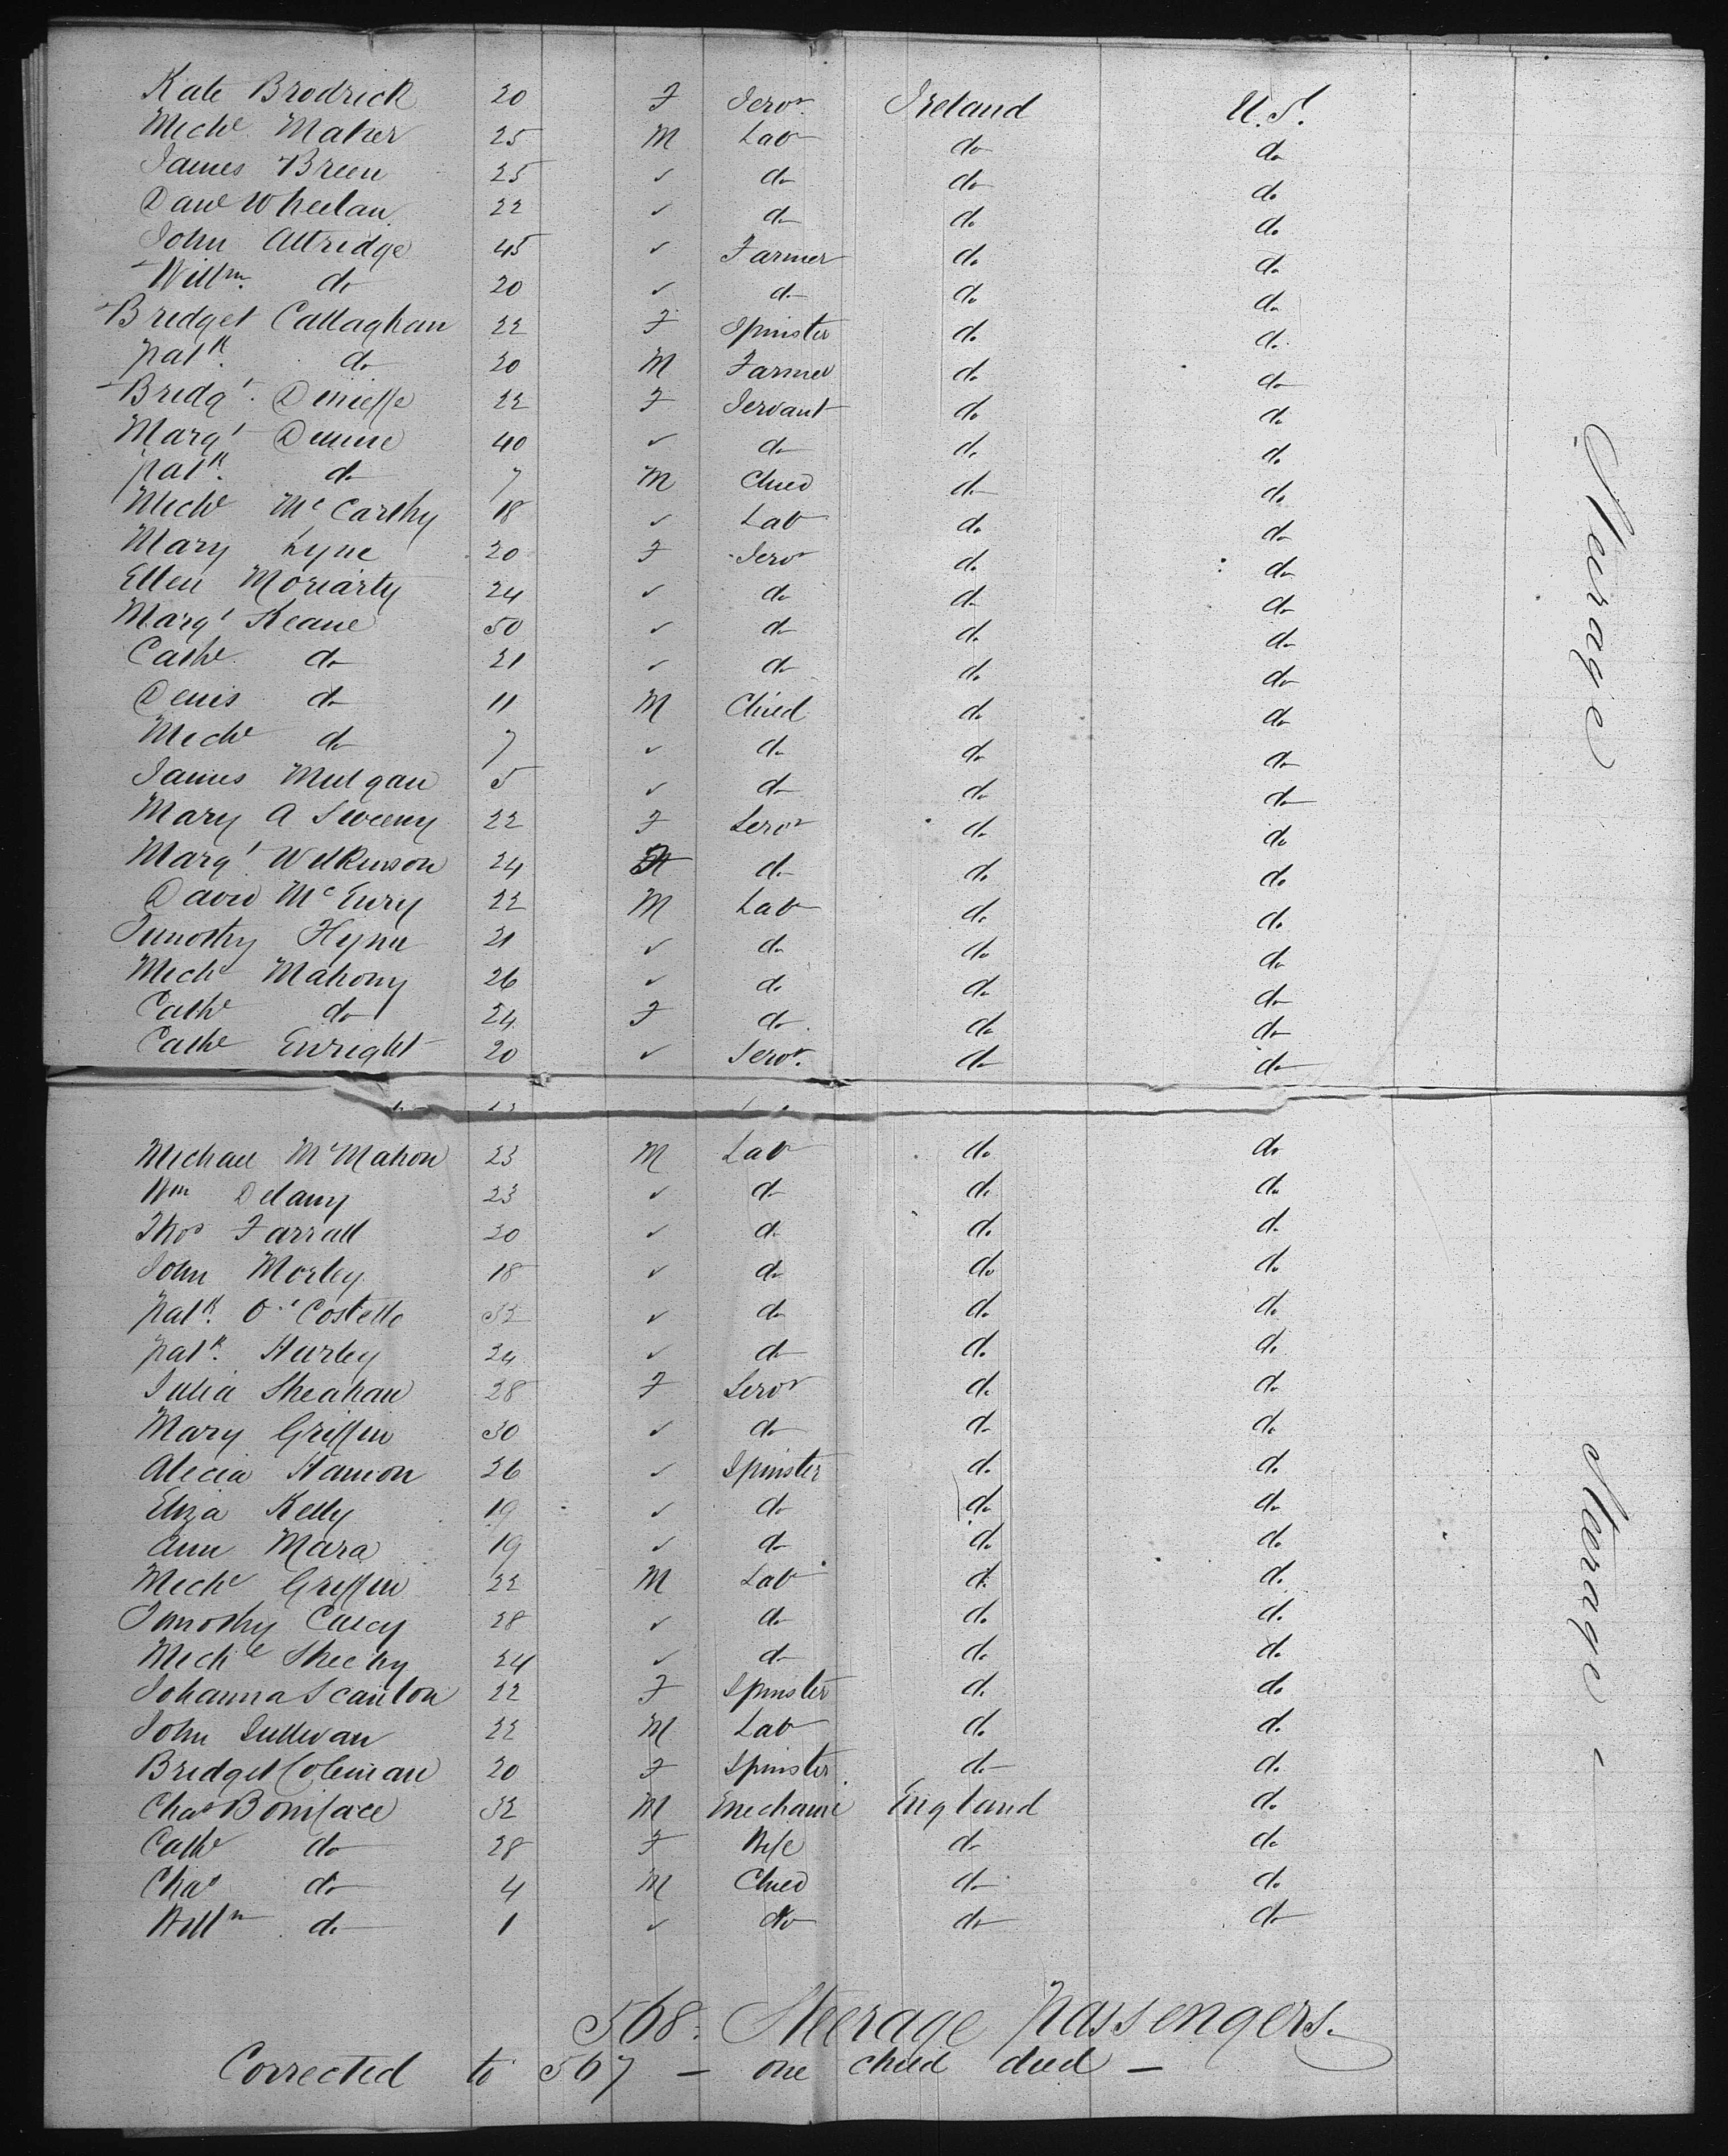 Kate Brodrick 20 F Servt. Ireland U.S.
Michl Maher 25 M Lab do do
James Breen 25 ✓ do do do
Danl Whelan 22 ✓ do do do
John Attridge 45 ✓ Farmer do do
Willm. do 20 ✓ do do do
Bridget Callaghan 22 F Spinster do do
Patk. do 20 M Farmer do do
Bridgt. 22 F Servant do do
Margt 40 ✓ do do do
Patk. do 7 M Child do do
Michl McCarthy 18 ✓ Lab do do
Mary Lyne 20 F Servt do do
Ellen Moriarty 24 ✓ do do do
Margt Keane 50 ✓ do do do
Cathe do 21 ✓ do do do
Denis do 11 M Child do do
Michl do 7 ✓ do do do
James Mulgan 5 ✓ do do do
Mary A Sweeny 22 F Servt do do
Margt Wilkinson 24 do do do
David McEnry 22 M Lab do do
Timothy 21 ✓ do do do
Michl Mahony 26 ✓ do do do
Cathe do 24 F do do do
Cathe Enright 20 ✓ Servt. do do
Michael McMahon 23 M Lab do do
Wm Delany 23 ✓ do do do
Thos Farrall 20 ✓ do do do
John Morley 18 ✓ do do do
Patk. O'Costello 32 ✓ do do do
Patk. Hurley 24 ✓ do do do
Julia Sheahan 28 F Servt do do
Mary Griffin 30 ✓ do do do
Alicia 26 ✓ Spinster do do
Eliza Kelly 19 ✓ do do do
Ann Mara 19 ✓ do do do
Michl Griffin 22 M Lab do do
Timothy Casey 28 ✓ do do do
Michl Sheehy 24 ✓ do do do
Johanna Scanlon 22 F Spinster do do
John Sullivan 22 M Lab do do
Bridget Coleman 20 F Spinster do do
Chas Boniface 32 M England do
Cathe do 28 F Wife do do
Chas do 4 M Child do do
Willm do 1 ✓ do do do
Steerage
Steerage
568. Steerage Passengers.
Corrected to 567 – one child died –